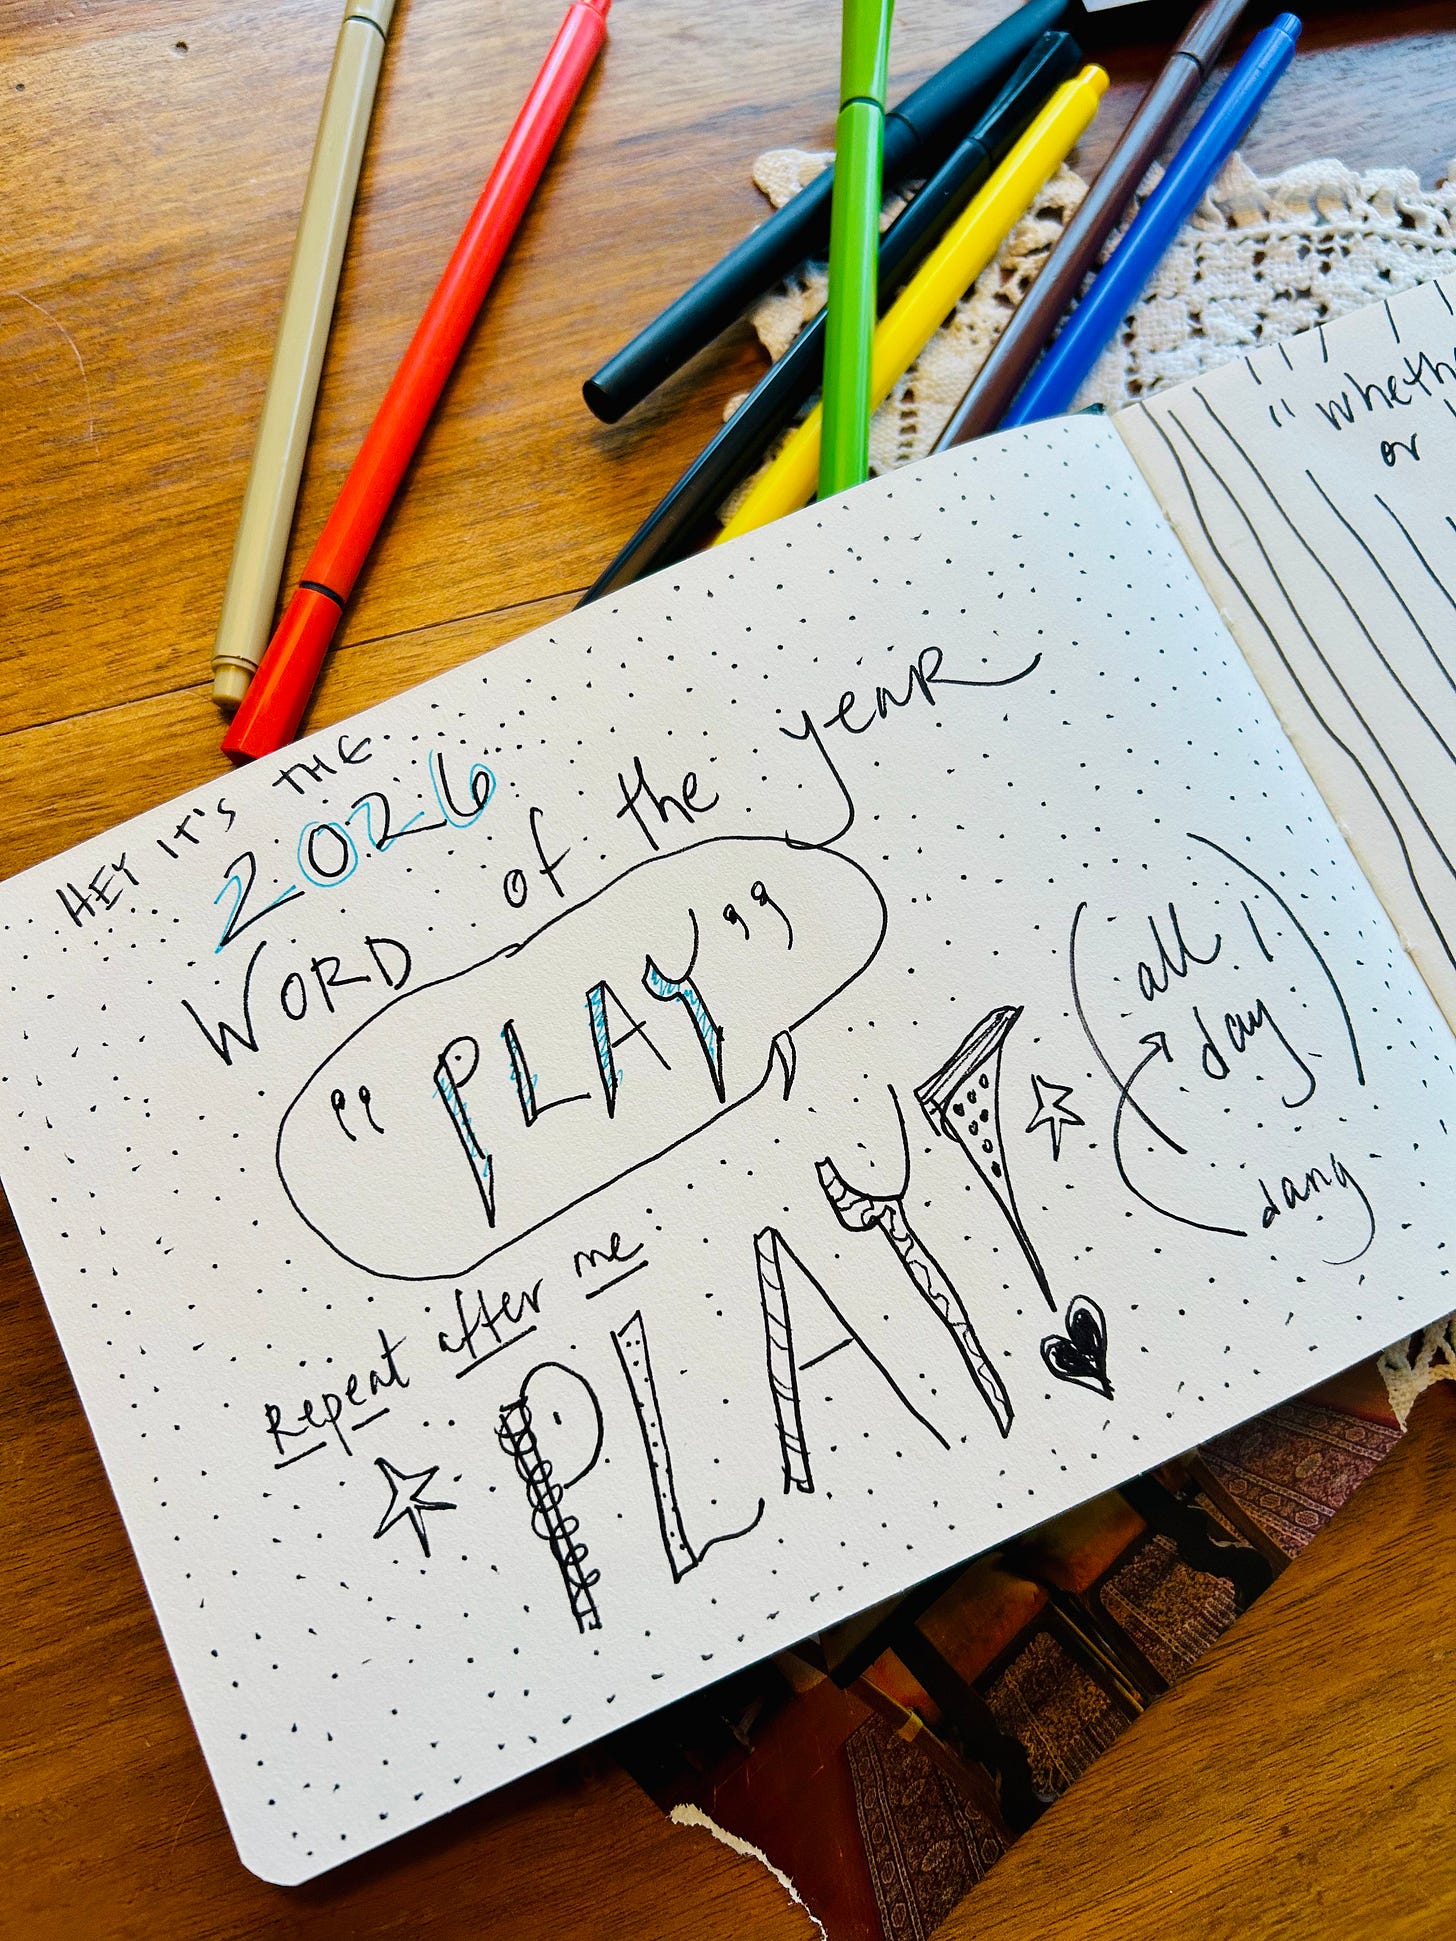 HEY IT'S THE
2026
WORD of the yeaR
"PLAY"
Repeat after me
PLAY!
(all day)
dang
"wheth
or